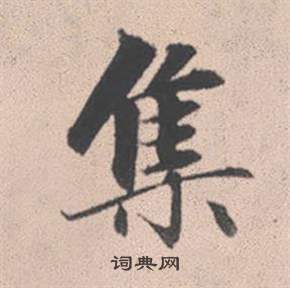 集
词典网